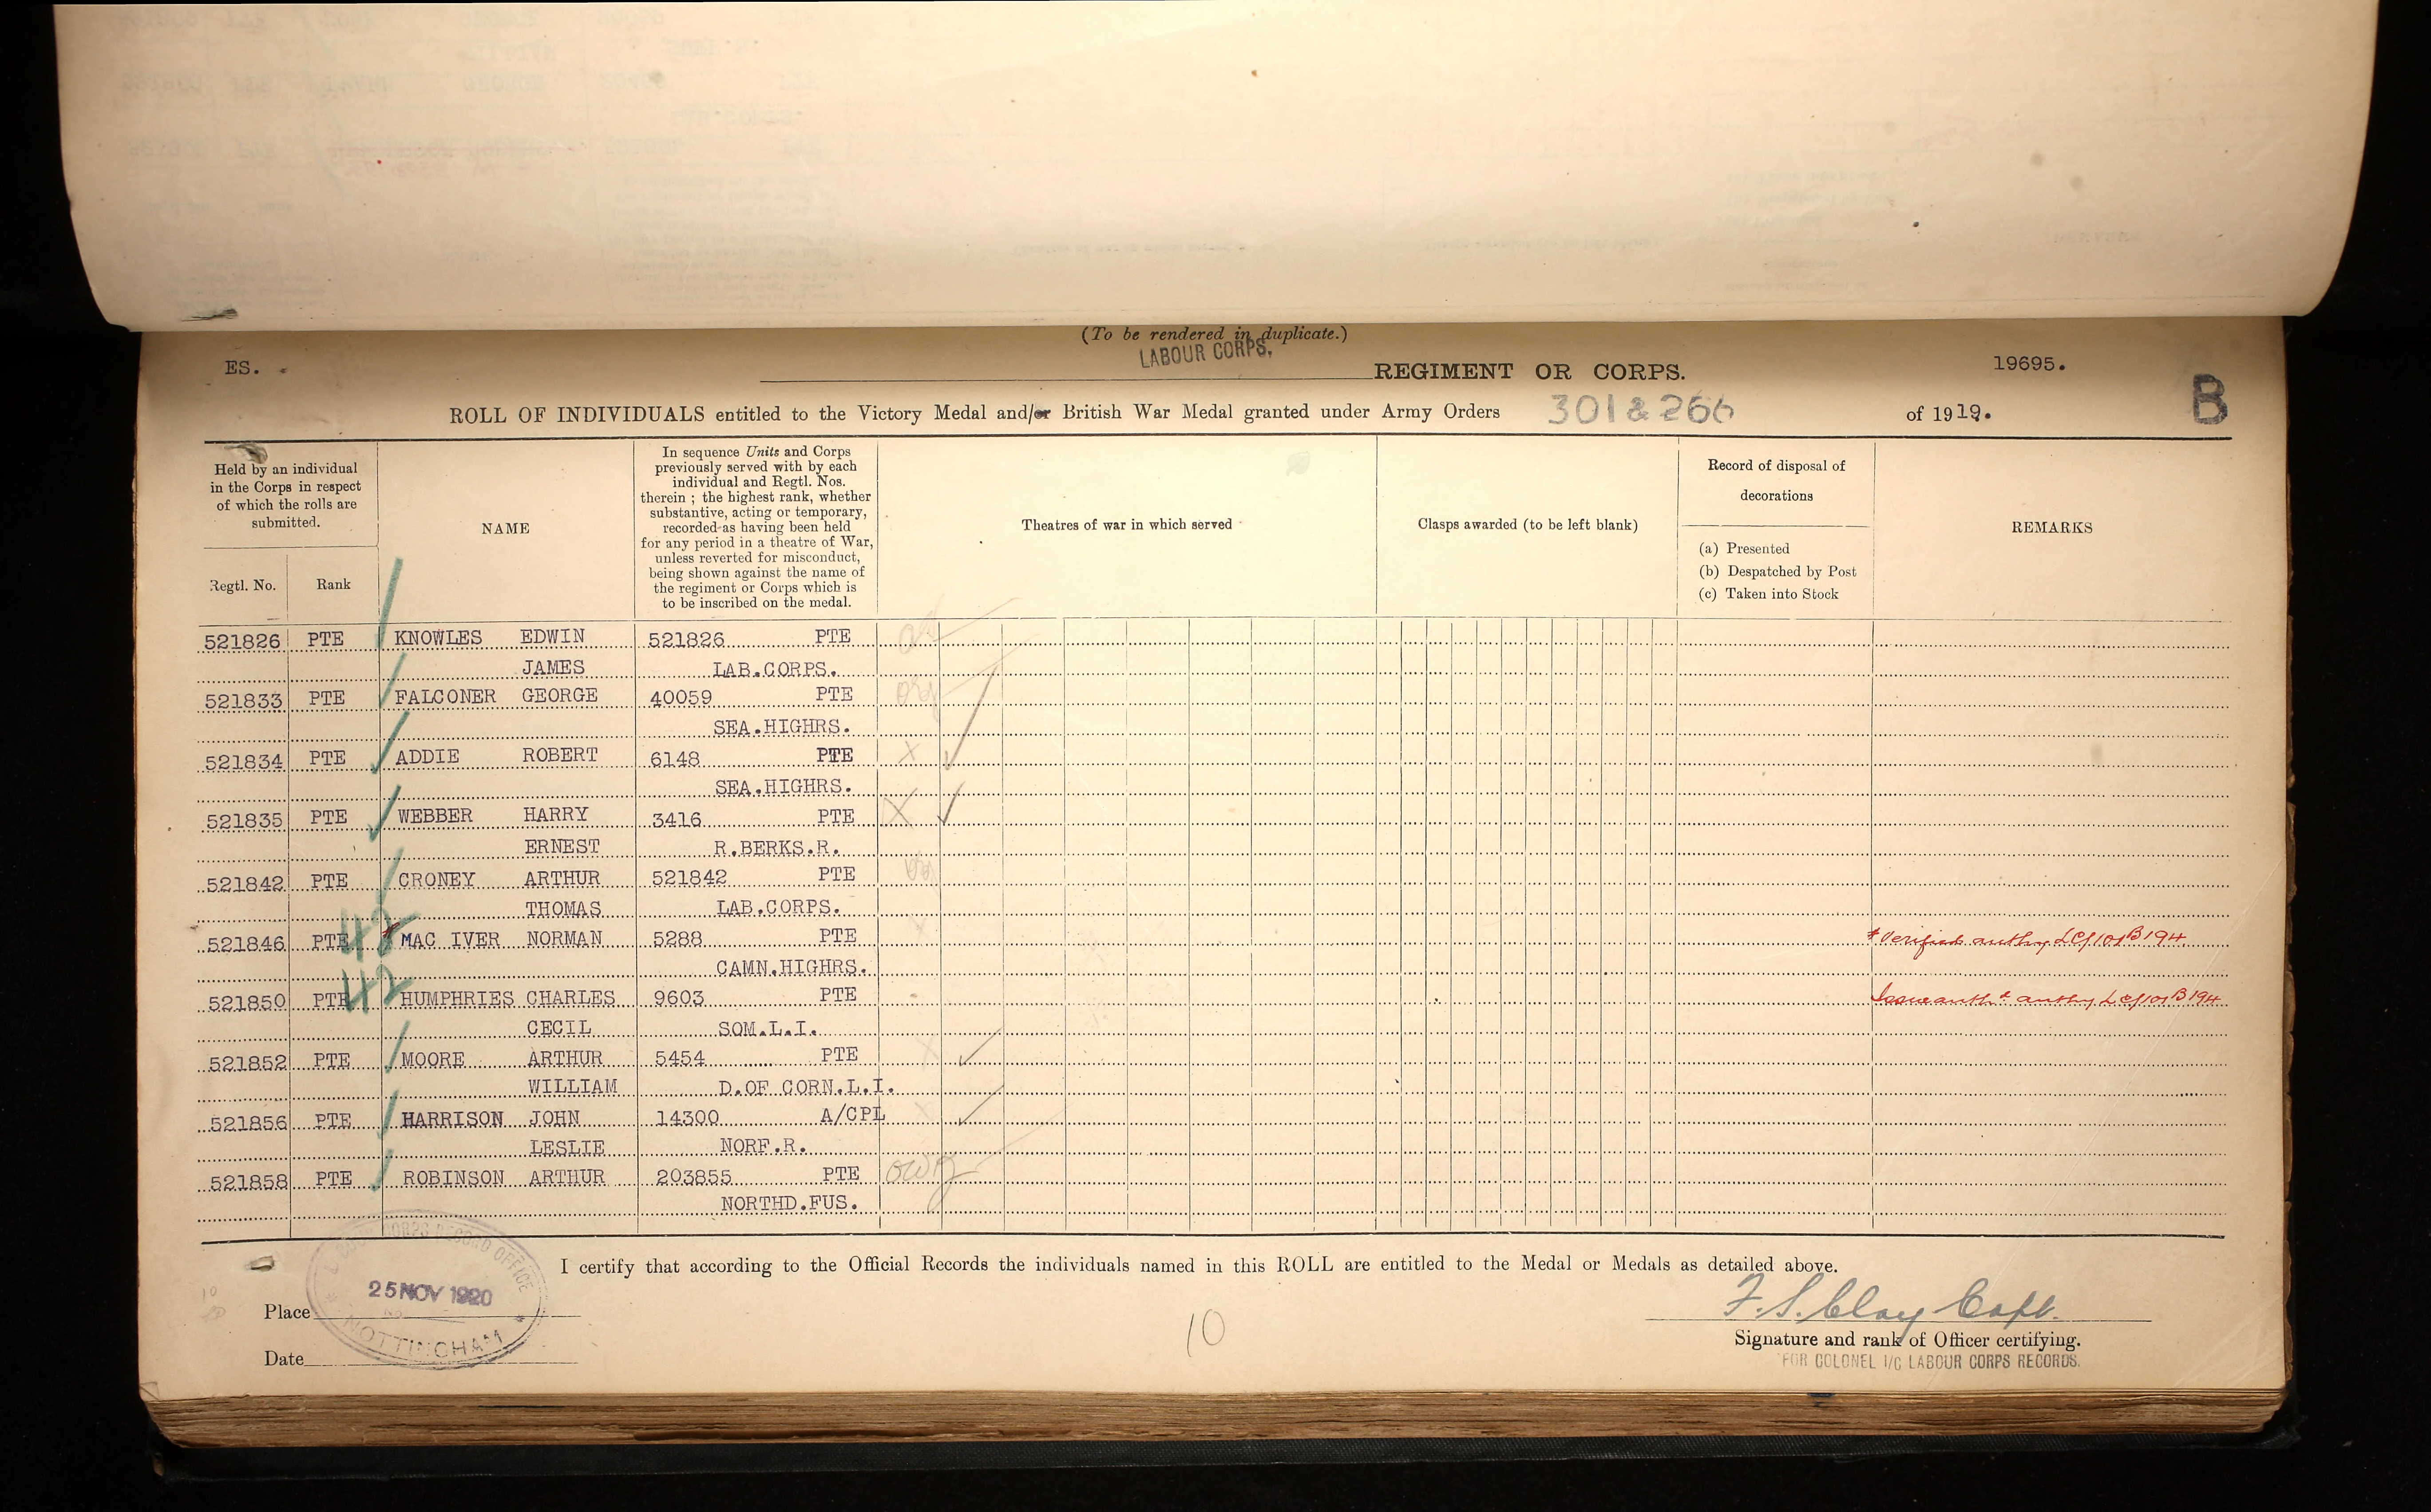 (To be rendered in duplicate.)
LABOUR CORPS.
ES. REGIMENT OR CORPS. 19695.
B
ROLL OF INDIVIDUALS entitled to the Victory Medal and/or British War Medal granted under Army Orders 301 & 266 of 1919.
Held by an individual in the Corps in respect of which the rolls are submitted.
Regtl. No. Rank
NAME
In sequence Units and Corps
previously served with by each
individual and Regtl. Nos.
therein ; the highest rank, whether
substantive, acting or temporary,
recorded as having been held
for any period in a theatre of War,
unless reverted for misconduct,
being shown against the name of
the regiment or Corps which is
to be inscribed on the medal.
Theatres of war in which served
Clasps awarded (to be left blank)
Record of disposal of
decorations
(a) Presented
(b) Despatched by Post
(c) Taken into Stock
REMARKS
521826 PTE KNOWLES EDWIN 521826 PTE
JAMES LAB.CORPS.
521833 PTE FALCONER GEORGE 40059 PTE
SEA.HIGHRS.
521834 PTE ADDIE ROBERT 6148 PTE
SEA.HIGHRS.
521835 PTE WEBBER HARRY 3416 PTE
ERNEST R.BERKS.R.
521842 PTE CRONEY ARTHUR 521842 PTE
THOMAS LAB.CORPS.
521846 PTE MAC IVER NORMAN 5288 PTE
CAMN.HIGHRS.
521850 PTE HUMPHRIES CHARLES 9603 PTE
CECIL SOM.L.I.
521852 PTE MOORE ARTHUR 5454 PTE
WILLIAM D.OF CORN.L.I.
521856 PTE HARRISON JOHN 14300 A/CPL
LESLIE NORF.R.
521858 PTE ROBINSON ARTHUR 203855 PTE
NORTHD.FUS.
I certify that according to the Official Records the individuals named in this ROLL are entitled to the Medal or Medals as detailed above.
CORPS RECORD OFFICE
25 NOV 1920
NOTTINGHAM
Place
Date
10
F. S. Clay Capt.
Signature and rank of Officer certifying.
FOR COLONEL I/C LABOUR CORPS RECORDS.